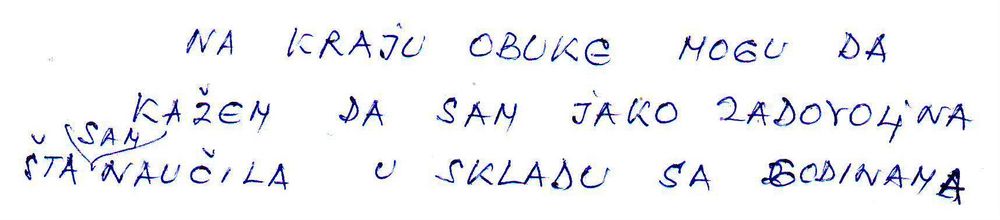 NA KRAJU OBUKE MOGU DA
KAŽEM DA SAM JAKO ZADOVOLJNA
ŠTA SAM NAUČILA U SKLADU SA GODINAMA